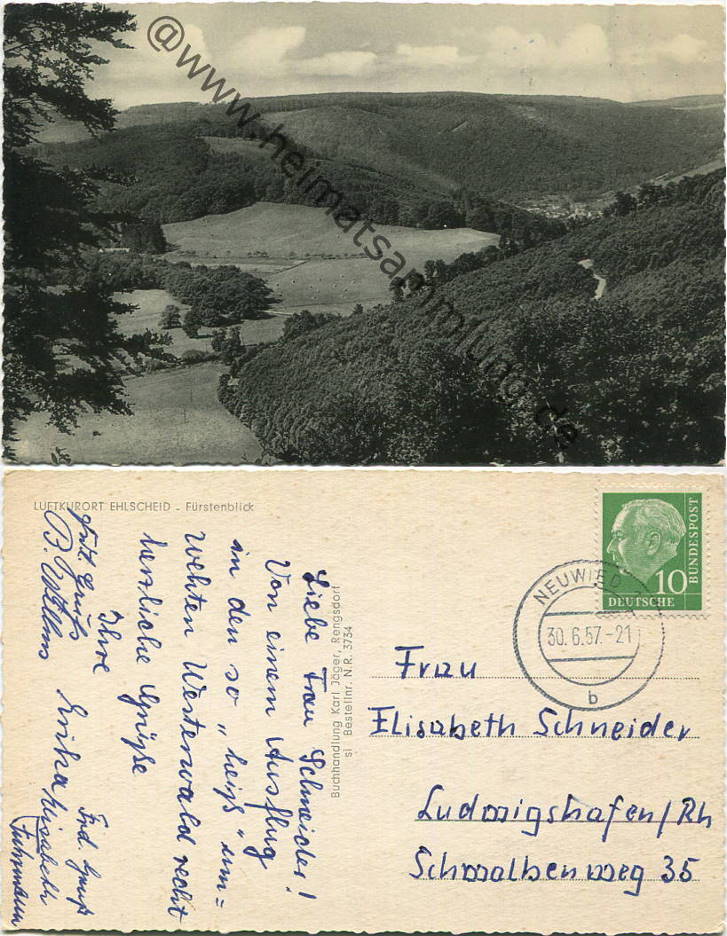 @www.heimatsammlung.de
LUFTKURORT EHLSCHEID - Fürstenblick
Liebe Frau Schneider!
Von einem Ausflug
in den so „heiß" um=
wehten Westerwald recht
herzliche Grüße
Ihre
Erika
Elisabeth
Frdl. Gruß
Gruß
B.
Buchhandlung Karl Jäger, Rengsdorf
si Bestellnr. N.R. 3734
DEUTSCHE
BUNDESPOST
10
NEUWIED
30.6.57.-21
b
Frau
Elisabeth Schneider
Ludwigshafen/Rh
Schwalbenweg 35